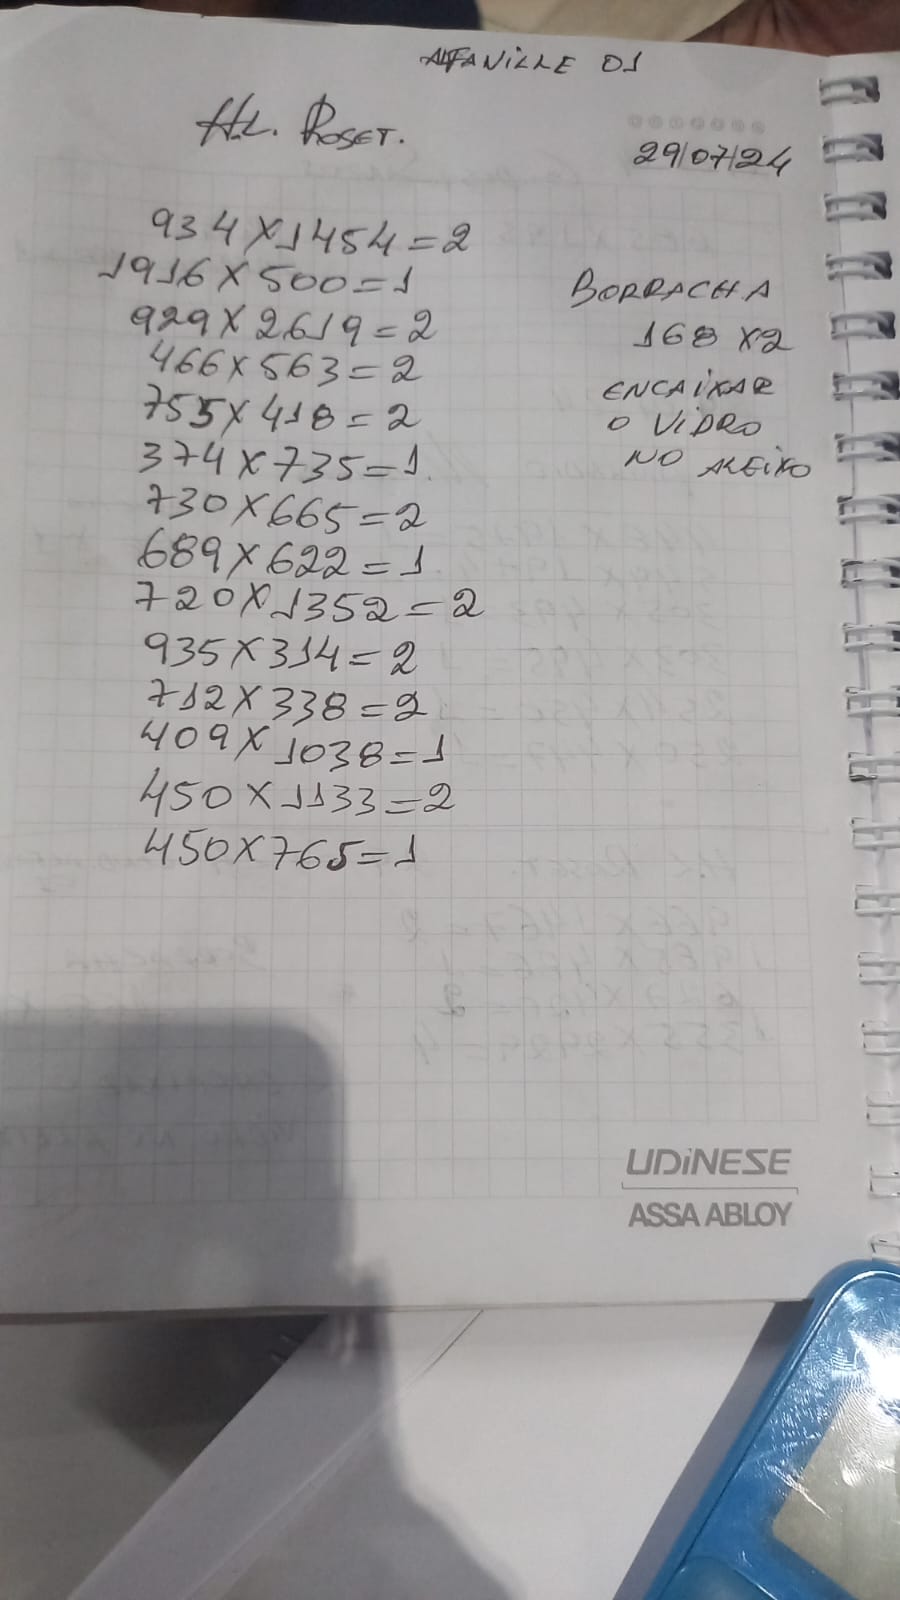 ALFAVILLE 01
H.L. ROSET.
29/07/24
934X1454=2
1916X500=1
929X2619=2
466X563=2
755X418=2
374X735=1.
730X665=2
689X622=1
720X1352=2
935X314=2
712X338=2
409X1038=1
450X1133=2
450X765=1
BORRACHA
168 X2
ENCAIXAR
O VIDRO
NO ALEIXO
UDiNESE
ASSA ABLOY